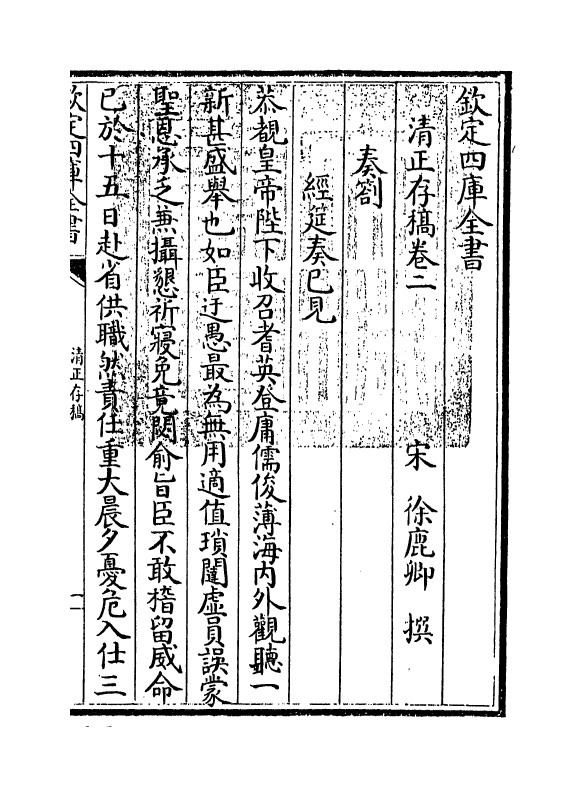 欽定四庫全書
清正存稿卷二
宋 徐鹿卿 撰
奏劄
經筵奏已見
恭覩皇帝陛下收召耆英登庸儒俊薄海内外觀聽一
新甚盛舉也如臣迂愚最為無用適值瑣闥虚員誤蒙
聖恩承乏兼攝懇祈寢免竟閟俞旨臣不敢稽留威命
已於十五日赴省供職然責任重大晨夕憂危入仕三
欽定四庫全書
清正存稿
一